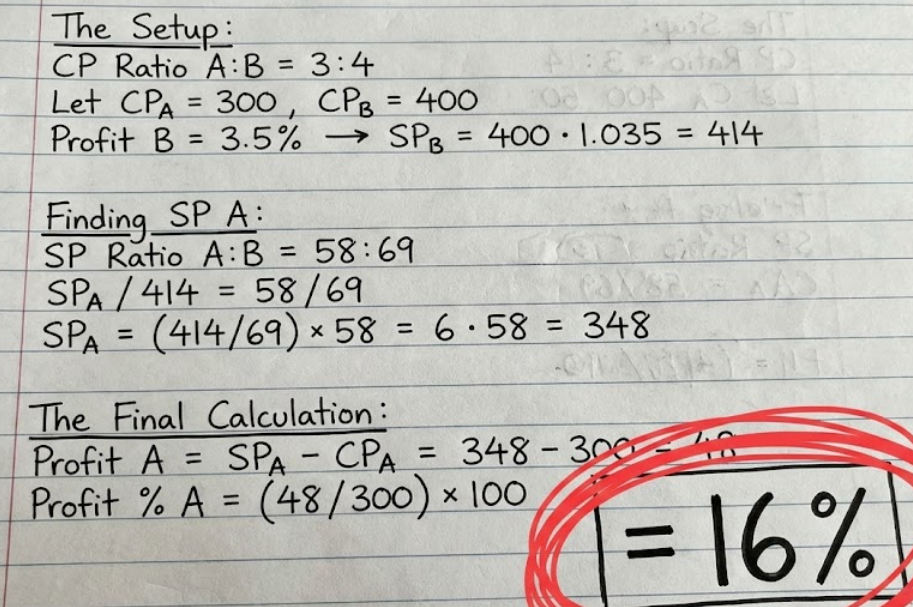 The Setup:
CP Ratio A:B = 3:4
Let CPA = 300 , CPB = 400
Profit B = 3.5% → SPB = 400 · 1.035 = 414
Finding SP A:
SP Ratio A:B = 58:69
SPA / 414 = 58/69
SPA = (414/69) × 58 = 6 · 58 = 348
The Final Calculation:
Profit A = SPA - CPA = 348 - 300 = 48
Profit % A = (48/300) × 100
= 16%